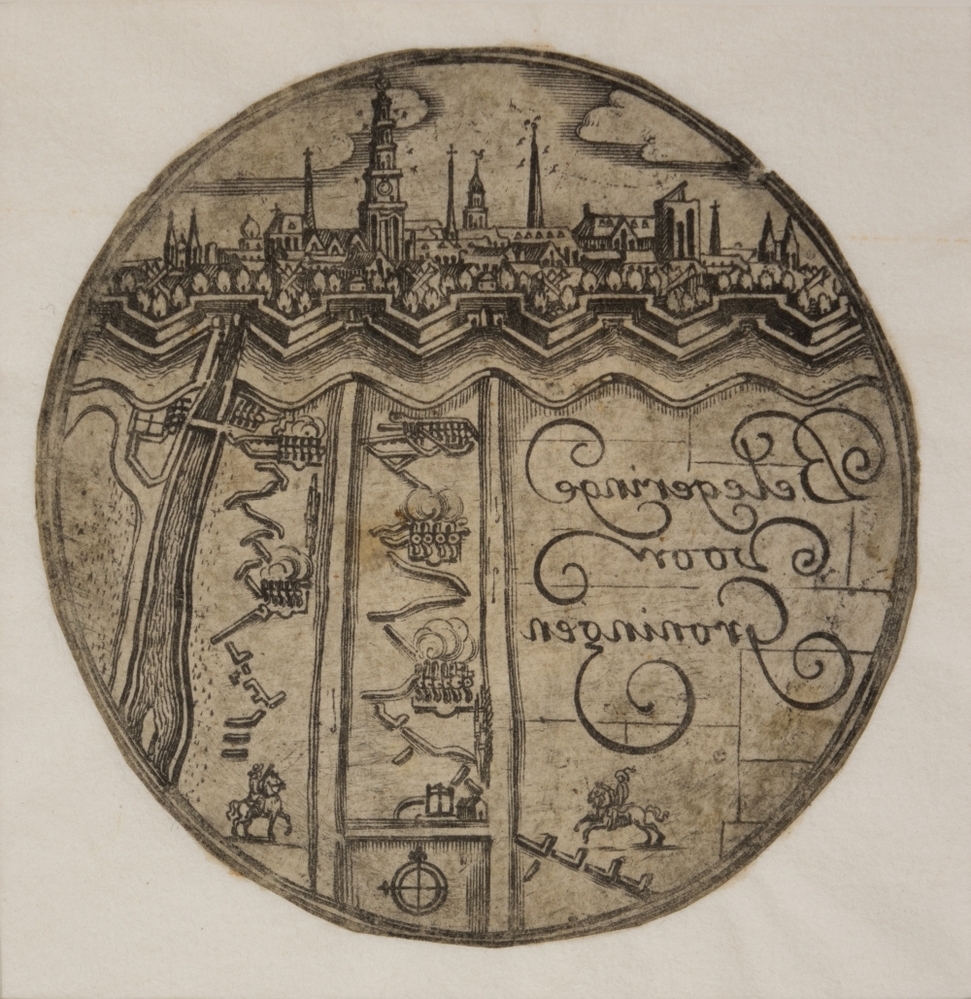 Belegeringe
voor
Groningen